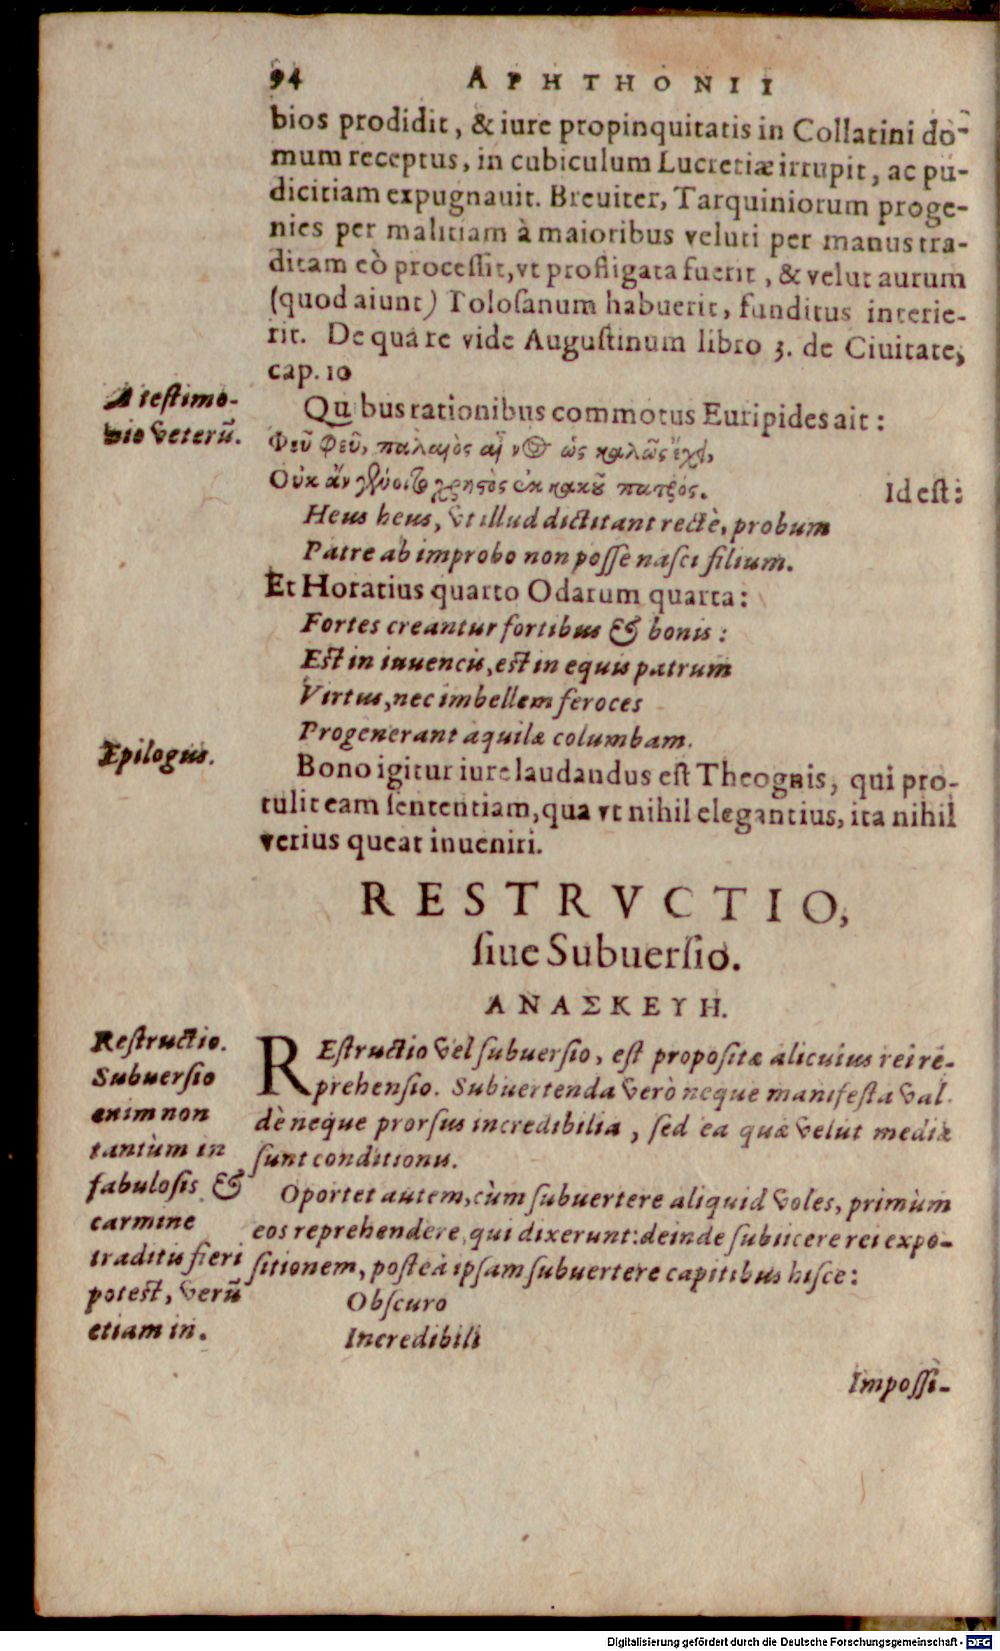 94 APHTHONII
bios prodidit, & iure propinquitatis in Collatini do-
mum receptus, in cubiculum Lucretiæ irrupit, ac pu-
dicitiam expugnauit. Breuiter, Tarquiniorum proge-
nies per malitiam à maioribus veluti per manus tra-
ditam eò processit, vt profligata fuerit, & velut aurum
(quod aiunt) Tolosanum habuerit, funditus interie-
rit. De qua re vide Augustinum libro 3. de Ciuitate,
cap. 10
A testimo-
nio veterũ.
Quibus rationibus commotus Euripides ait:
Φεῦ φεῦ, παλαιὸς αἶνος ὡς καλῶς ἔχει,
Οὐκ ἂν γένοιτο χρηστὸς ἐκ κακοῦ πατρός. Id est:
Heus heus, vt illud dictitant rectè, probum
Patre ab improbo non posse nasci filium.
Et Horatius quarto Odarum quarta:
Fortes creantur fortibus & bonis:
Est in iuuencis, est in equis patrum
Virtus, nec imbellem feroces
Progenerant aquilæ columbam.
Epilogus.
Bono igitur iure laudandus est Theognis, qui pro-
tulit eam sententiam, qua vt nihil elegantius, ita nihil
verius queat inueniri.
RESTRVCTIO,
siue Subuersio.
ΑΝΑΣΚΕΥΗ.
Restructio.
Subuersio
enim non
tantùm in
fabulosis &
carmine
traditis fieri
potest, verũ
etiam in.
REstructio vel subuersio, est propositæ alicuius rei re-
prehensio. Subuertenda verò neque manifesta val-
dè neque prorsus incredibilia, sed ea quæ velut mediæ
sunt conditionis.
Oportet autem, cùm subuertere aliquid voles, primùm
eos reprehendere, qui dixerunt: deinde subiicere rei expo-
sitionem, posteà ipsam subuertere capitibus hisce:
Obscuro
Incredibili
Impossi-
Digitalisierung gefördert durch die Deutsche Forschungsgemeinschaft - DFG